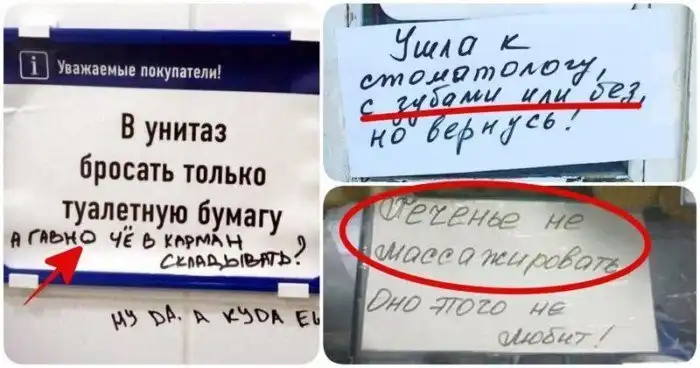 Уважаемые покупатели!
В унитаз
бросать только
туалетную бумагу
А ГАВНО ЧЁ В КАРМАН
СКЛАДЫВАТЬ?
НУ ДА. А КУДА
Ушла к
стоматологу,
с зубами или без,
но вернусь!
Печенье не
массажировать
Оно этого не
любит!